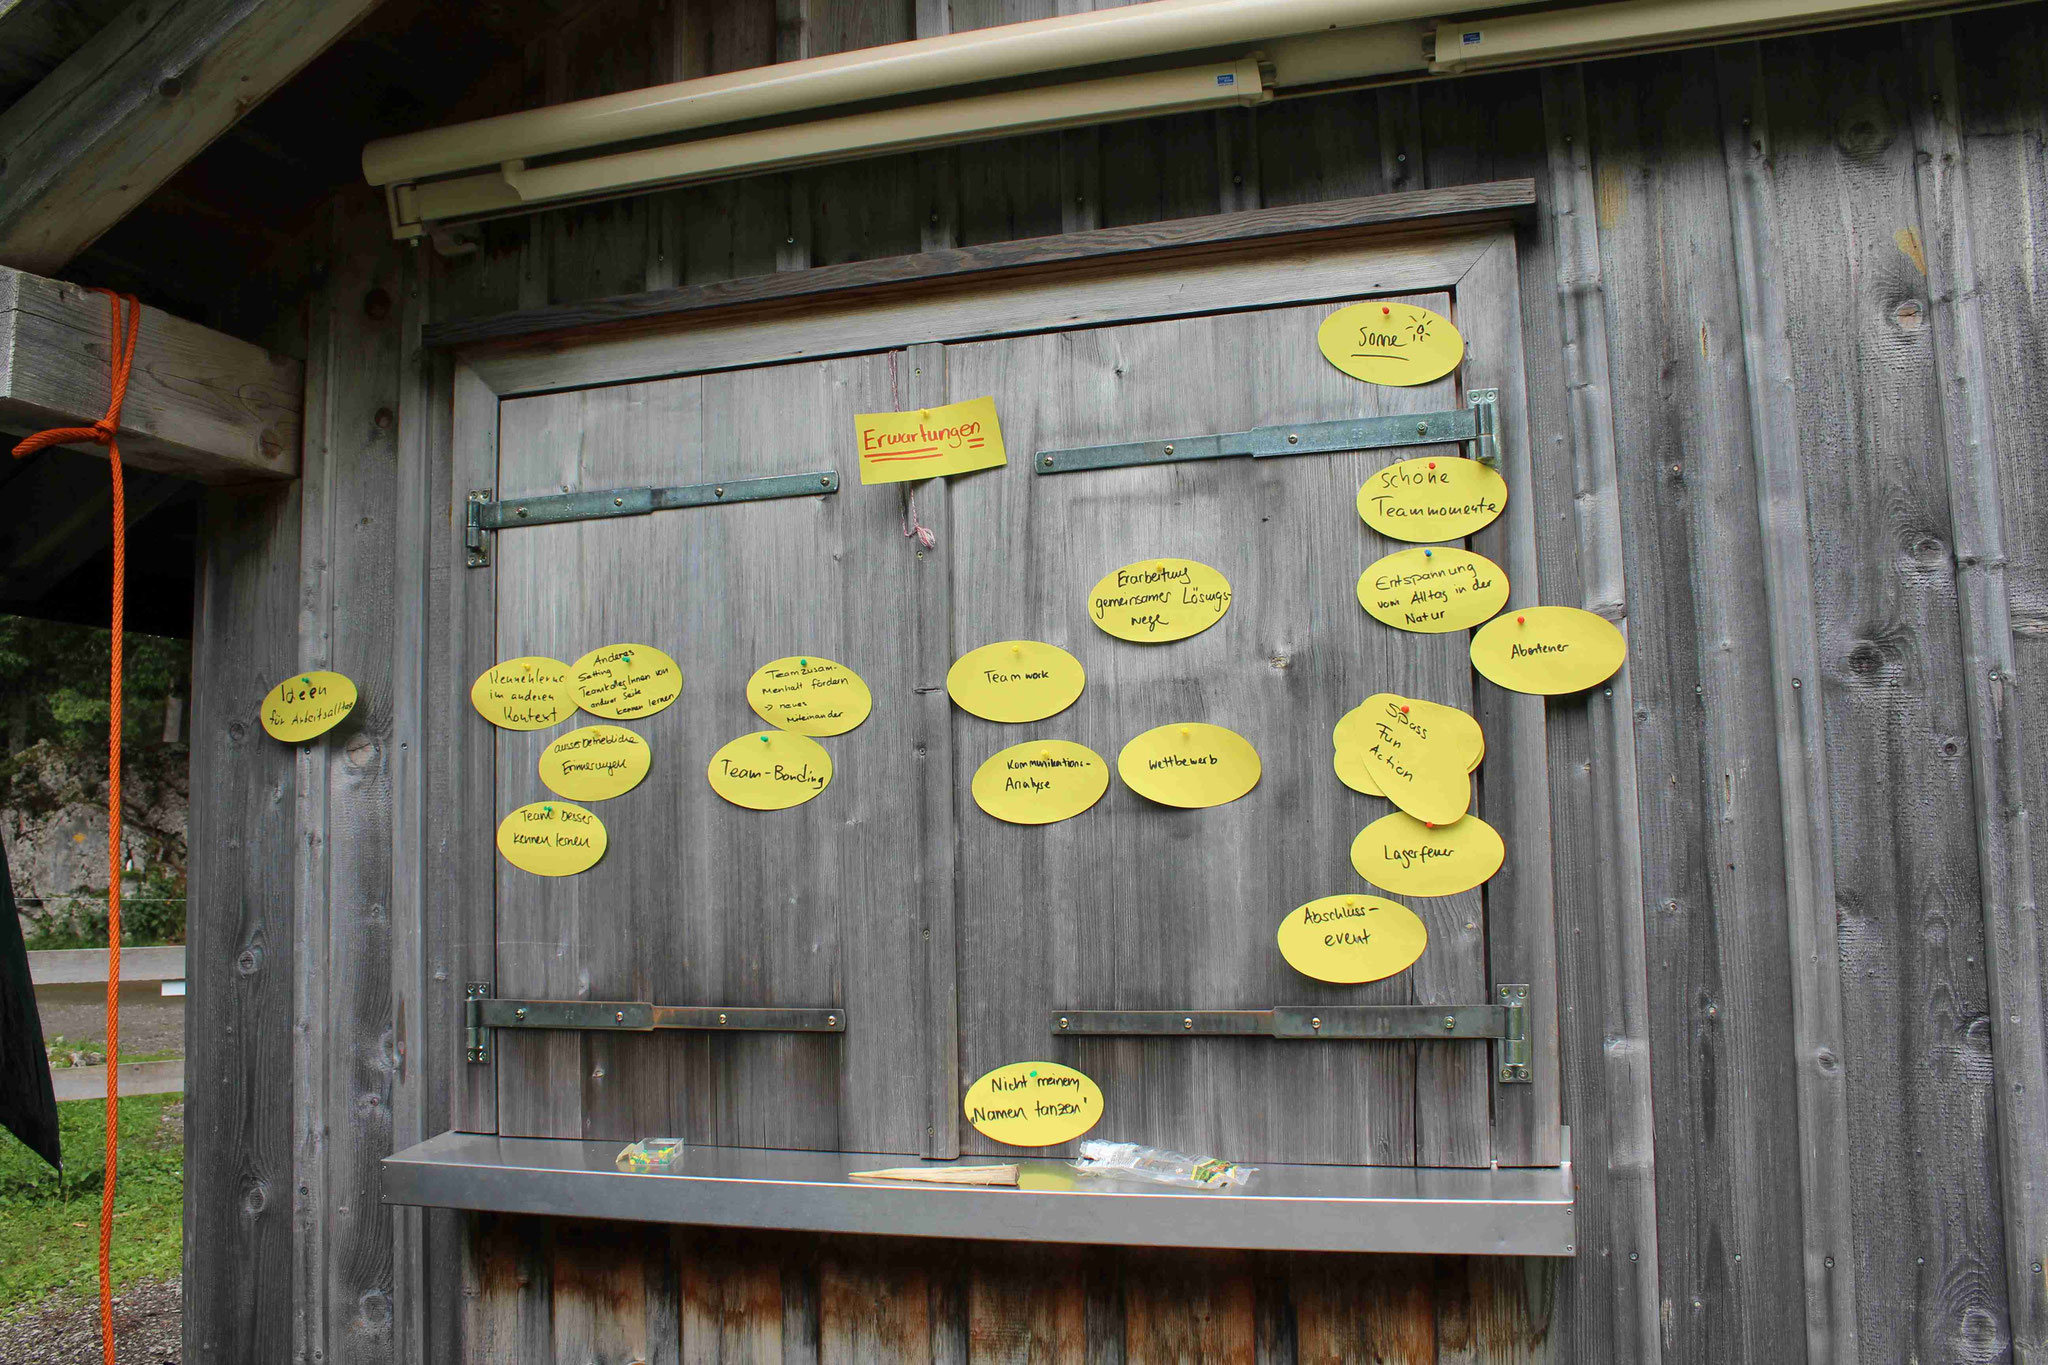 Sonne
Erwartungen
schöne
Teammomente
Erarbeitung
gemeinsamer Lösungs-
wege
Entspannung
vom Alltag in der
Natur
Abenteuer
Ideen
für Arbeitsalltag
Kennenlernen
im anderen
Kontext
Anderes
Setting
TeamkollegInnen von
anderer Seite
kennen lernen
Teamzusam-
menhalt fördern
→ neues
Miteinander
Teamwork
ausserbetriebliche
Erinnerungen
Team-Bonding
Kommunikations-
Analyse
Wettbewerb
Spass
Fun
Action
Team besser
kennen lernen
Lagerfeuer
Abschluss-
event
Nicht meinem
„Namen tanzen"